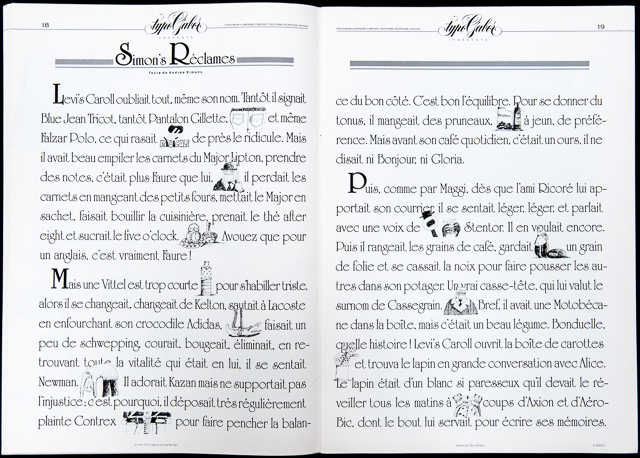 18
typoGabor
PRESENTE
Simon's Réclames
Texte de Andrea Simons
Levi's Caroll oubliait tout, même son nom. Tantôt il signait
Blue Jean Tricot, tantôt Pantalon Gillette, et même
Falzar Polo, ce qui rasait de près le ridicule. Mais
il avait beau empiler les carnets du Major Lipton, prendre
des notes, c'était plus Faure que lui, il perdait les
carnets en mangeant des petits fours, mettait le Major en
sachet, faisait bouillir la cuisinière, prenait le thé after
eight et sucrait le five o'clock. Avouez que pour
un anglais, c'est vraiment Faure !
Mais une Vittel est trop courte pour s'habiller triste,
alors il se changeait, changeait de Kelton, sautait à Lacoste
en enfourchant son crocodile Adidas, faisait un
peu de schwepping, courait, bougeait, éliminait, en re-
trouvant toute la vitalité qui était en lui, il se sentait
Newman. Il adorait Kazan mais ne supportait pas
l'injustice; c'est pourquoi, il déposait très régulièrement
plainte Contrex pour faire pencher la balan-
19
typoGabor
PRESENTE
ce du bon côté. C'est bon l'équilibre. Pour se donner du
tonus, il mangeait des pruneaux, à jeun, de préfé-
rence. Mais avant son café quotidien, c'était un ours, il ne
disait ni Bonjour, ni Gloria.
Puis, comme par Maggi, dès que l'ami Ricoré lui ap-
portait son courrier, il se sentait léger, léger, et parlait
avec une voix de Stentor. Il en voulait encore.
Puis il rangeait les grains de café, gardait un grain
de folie et se cassait la noix pour faire pousser les au-
tres dans son potager. Un vrai casse-tête, qui lui valut le
surnom de Cassegrain. Bref, il avait une Motobéca-
ne dans la boîte, mais c'était un beau légume. Bonduelle,
quelle histoire ! Levi's Caroll ouvrit la boîte de carottes
et trouva le lapin en grande conversation avec Alice.
Le lapin était d'un blanc si paresseux qu'il devait le ré-
veiller tous les matins à coups d'Axion et d'Aéro-
Bic, dont le bout lui servait pour écrire ses mémoires.